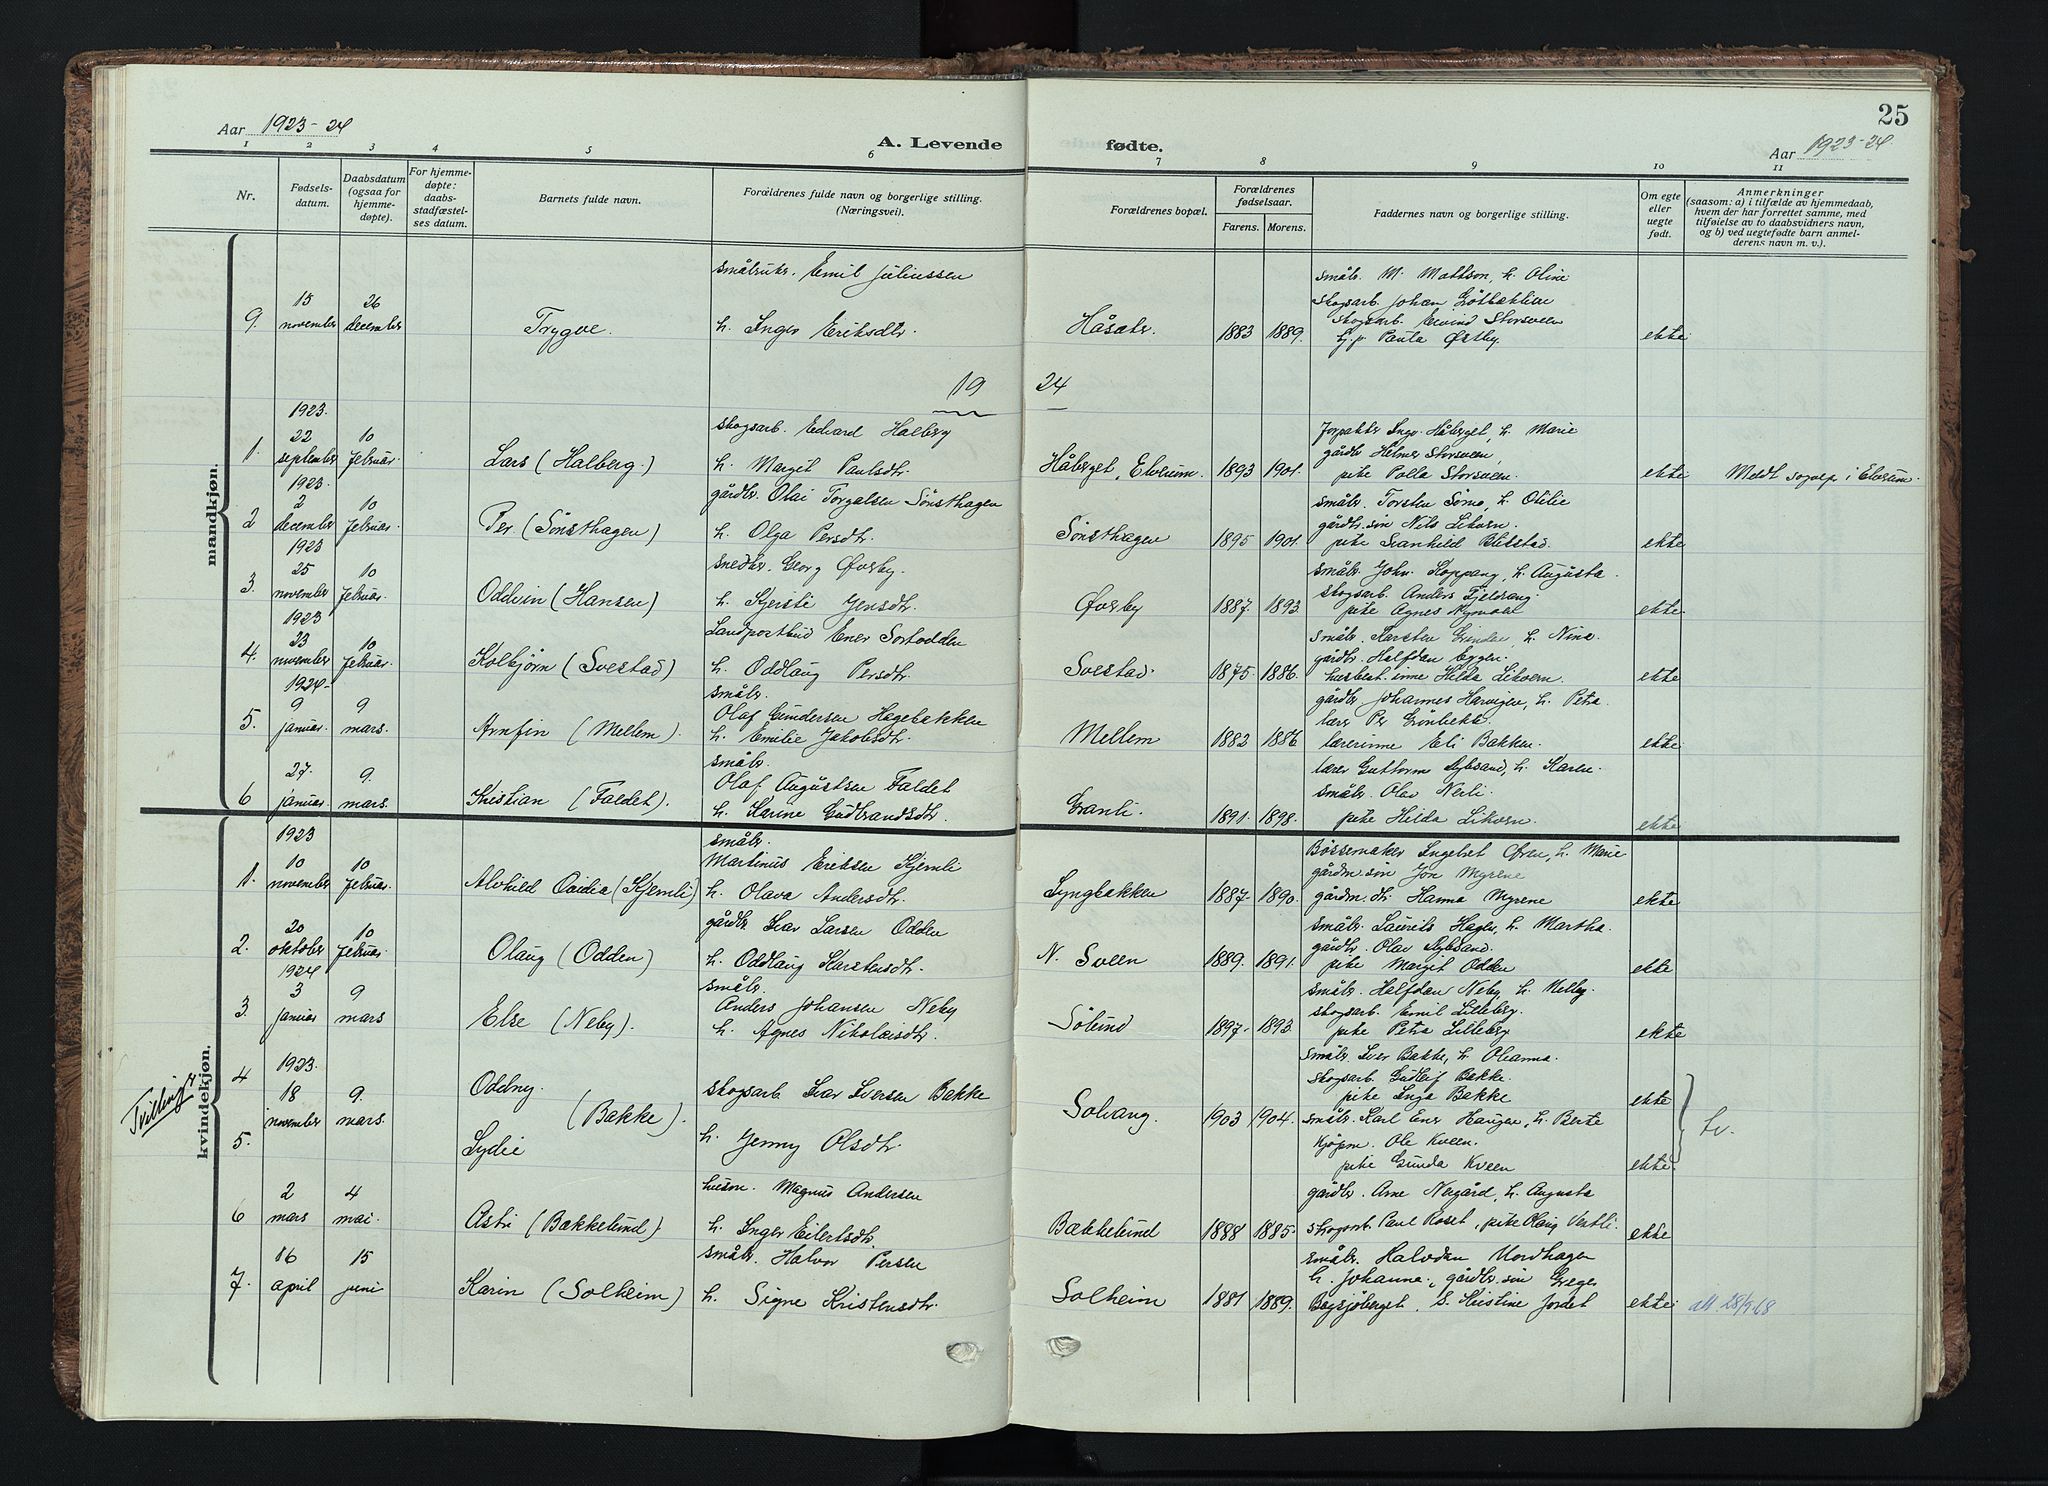 25
Aar 1923-24
A. Levende fødte.
Aar 1923-24.
1 2 3 4 5 6 7 8 9 10 11
Nr.
Fødsels-
datum.
Daabsdatum
(ogsaa for
hjemme-
døpte).
For hjemme-
døpte:
daabs-
stadfæstel-
ses datum.
Barnets fulde navn.
Forældrenes fulde navn og borgerlige stilling.
(Næringsvei).
Forældrenes bopæl.
Forældrenes
fødselsaar.
Farens. Morens.
Faddernes navn og borgerlige stilling.
Om egte
eller
uegte
født.
Anmerkninger
(saasom: a) i tilfælde av hjemmedaab,
hvem der har forrettet samme, med
tilføielse av to daabsvidners navn,
og b) ved uegtefødte barn anmel-
derens navn m. v.).
mandkjøn.
9. 15 november 26 december Trygve.
småbruker. Emil Juliussen
h. Inger Eriksdtr.
Håsætr. 1883 1889.
småbr. M. Mattson, h. Oline
skogsarb. Johan
skogsarb. Eivind Storsveen
Paula Østby
ekte
19 24
1. 1923. 22 september 10 februar. Lars (Halberg.)
skogsarb. Edvard Halberg
h. Marget Paulsdtr.
Håberget, Elverum. 1893 1901.
Forpakter Ingv. Håberget, h. Marie
gårdbr Helmer Storsveen,
pike Polla Storsveen.
ekte Meldt sognepr i Elverum.
2 1923. 2 december 10 februar. Per (Sønsthagen)
gårdbr. Olai Torgalsen Sønsthagen
h. Olga Persdtr.
Sønsthagen 1895 1901.
småbr. Torsten Sømo, h. Otilie
gårdbr. søn Nils Likvern.
pike Svanhild Blilstad.
ekte
3. 1923 25 november 10 februar. Oddvin (Hansen)
snedker. Georg Øverby.
h. Kjersti Jensdtr.
Øverby 1887. 1893.
småbr. John Koppang, h. Augusta.
skogsarb. Anders Fjeldvang.
pike Agnes Nymoen
ekte.
4. 1923 23 november 10 februar. Kolbjørn (Svestad)
Landpostbud Ener Sortodden
h. Oddlaug Persdtr.
Svestad. 1875. 1886.
småbr. Karsten Grindar, h. Nina.
gårdbr. Halfdan Eggen.
husbest.inne Hilda Likvern.
ekte
5. 1924- 9 januar. 9 mars. Arnfin (Mellem).
småbr.
Olaf Gundersen Hagebakken
h. Emilie Jakobsdtr.
Mellem 1882 1886
gårdbr Johannes Haugen, h. Petra.
lærer Per Grønbekk.
lærerinne Eli Bakken.
ekte.
6 27. januar 9. mars. Kristian (Faldet).
småbr.
Olaf Augustsen Faldet
h. Karine Gudbrandsdtr.
Granli. 1891. 1898.
lærer Guttorm Nybsand, h. Karen.
småbr. Olav Nerli.
pike Hilda Likvern.
ekte
kvindekjøn.
1. 1923 10 november 10 februar. Alvhild Ovidia (Kjemli)
småbr.
Martinus Eriksen Kjemli
h. Olava Andersdtr.
Lyngbakken 1887- 1890.
Bøssemaker Ingebret Øren, h. Marie
gårdm. søn Jon Myrene
gårdm. dtr. Hanna Myrene
ekte
2. 20 oktober 10 februar. Olaug (Odden)
gårdbr Ivar Larsen Odden
h. Oddlaug Karstensdtr.
N. Sveen 1889. 1891.
småbr. Laurits Hagen, h. Martha.
gårdbr. Olav Nybsand.
pike Marget Odden
ekte
3. 1924 3 januar 9 mars Else (Neby).
småbr.
Anders Johansen Neby
h. Agnes Nikolaisdtr.
Sølund 1897- 1893.
småbr. Halfdan Neby h. Melby.
skogsarb. Emil Lilleberg.
pike Petra Lilleberg
ekte
Tvillinger
4 1923. 18 november 9. mars. Oddny. (Bakke.)
5. Lydie
skogsarb Ivar Iversen Bakke
h. Jenny Olsdtr.
Solvang. 1903 1904.
småbr. Iver Bakke, h. Oleanna.
skogsarb. Gudleif Bakke.
pike Inga Bakke
ekte
småbr. Karl Ener Haugen, h. Berte
kjøpm. Ole Kveen.
pike Gunda Kveen
ekte tv.
6 2 mars 4 mai. Astri (Bækkelund)
husm. Magnus Andersen
h. Inger Eilertsdtr.
Bækkelund 1888 1885.
gårdbr. Arne Nergård, h. Augusta
skogsarb Paul Roset, pike Olaug Vestli.
ekte
7. 16 april 15 juni Karin (Solheim)
småbr. Halvor Persen
h. Signe Kristensdtr.
Solheim 1881 1889.
småbr. Halvdan Nordhagen
h. Johanna, gårdbr. søn Greger
Bagsjøberget, S. Kristine Jordet
ekte. att 28/9 68